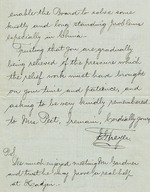 enable the Board to solve some
knotty and long standing problems
especially in China.
Trusting that you are gradually
being relieved of the pressure which
the relief work must have brought
on your time and patience, and
asking to be very kindly remembered
to Mrs. Mott, I remain, Cordially yours,
P.S.
We much enjoyed meeting Mr. Gardner
and trust he may prove a real help
at